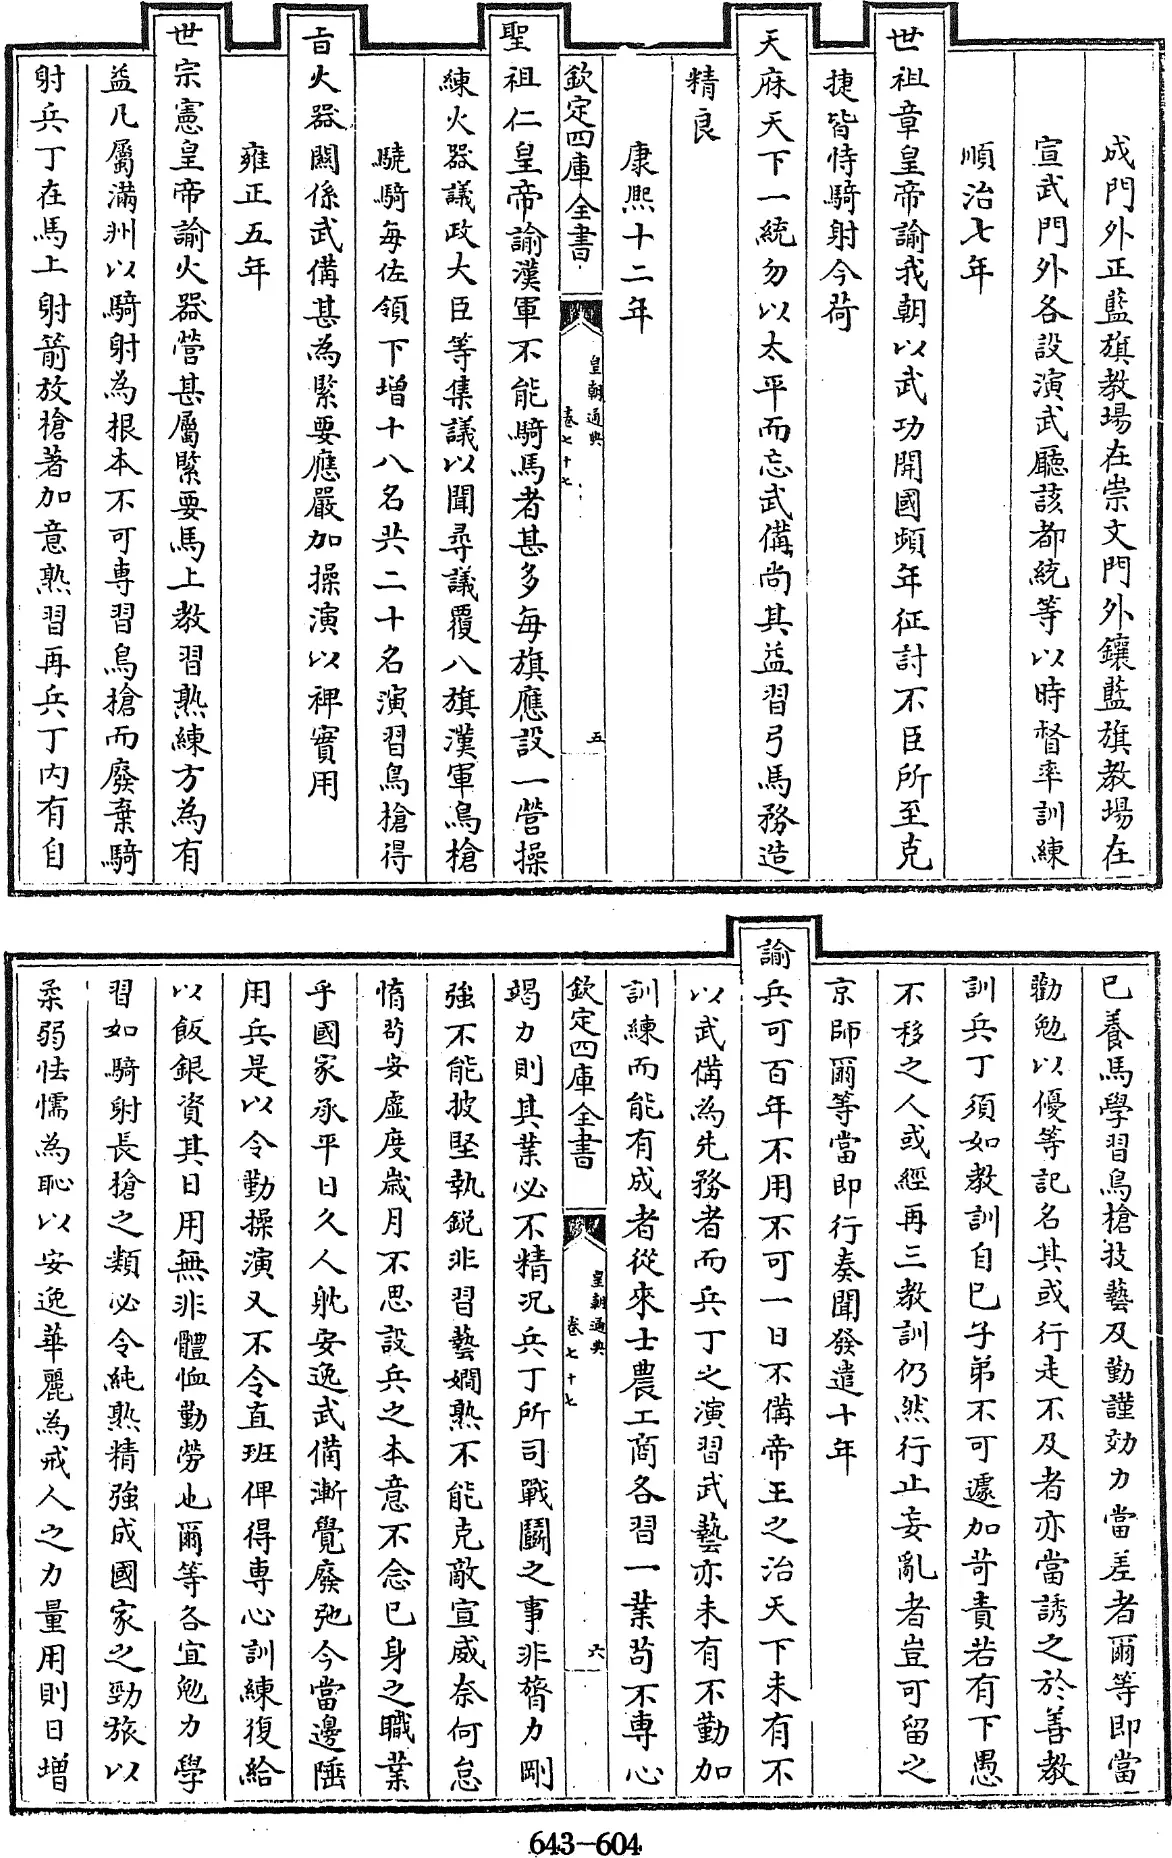 成門外正藍旗教場在崇文門外鑲藍旗教場在
宣武門外各設演武廳該都統等以時督率訓練
順治七年
世祖章皇帝諭我朝以武功開國頻年征討不臣所至克
捷皆恃騎射今荷
天庥天下一統勿以太平而忘武備尚其益習弓馬務造
精良
康熙十二年
欽定四庫全書
皇朝通典
卷七十七
五
聖祖仁皇帝諭漢軍不能騎馬者甚多每旗應設一營操
練火器議政大臣等集議以聞尋議覆八旗漢軍鳥槍
驍騎每佐領下增十八名共二十名演習鳥槍得
旨火器闗係武備甚為緊要應嚴加操演以裨實用
雍正五年
世宗憲皇帝諭火器營甚屬緊要馬上教習熟練方為有
益凡屬滿洲以騎射為根本不可専習鳥槍而廢棄騎
射兵丁在馬上射箭放槍著加意熟習再兵丁内有自
已養馬學習鳥槍技藝及勤謹効力當差者爾等即當
勸勉以優等記名其或行走不及者亦當誘之於善教
訓兵丁須如教訓自已子弟不可遽加苛責若有下愚
不移之人或經再三教訓仍然行止妄亂者豈可留之
京師爾等當即行奏聞發遣十年
諭兵可百年不用不可一日不備帝王之治天下未有不
以武備為先務者而兵丁之演習武藝亦未有不勤加
訓練而能有成者從來士農工商各習一業苟不專心
欽定四庫全書
皇朝通典
卷七十七
六
竭力則其業必不精况兵丁所司戰鬬之事非膂力剛
強不能披堅執銳非習藝嫺熟不能克敵宣威奈何怠
惰苟安虚度歲月不思設兵之本意不念已身之職業
乎國家承平日久人躭安逸武備漸覺廢弛今當邊陲
用兵是以令勤操演又不令直班俾得専心訓練復給
以飯銀資其日用無非體恤勤勞也爾等各宜勉力學
習如騎射長槍之類必令純熟精強成國家之勁旅以
柔弱怯懦為恥以安逸華麗為戒人之力量用則日增
643-604